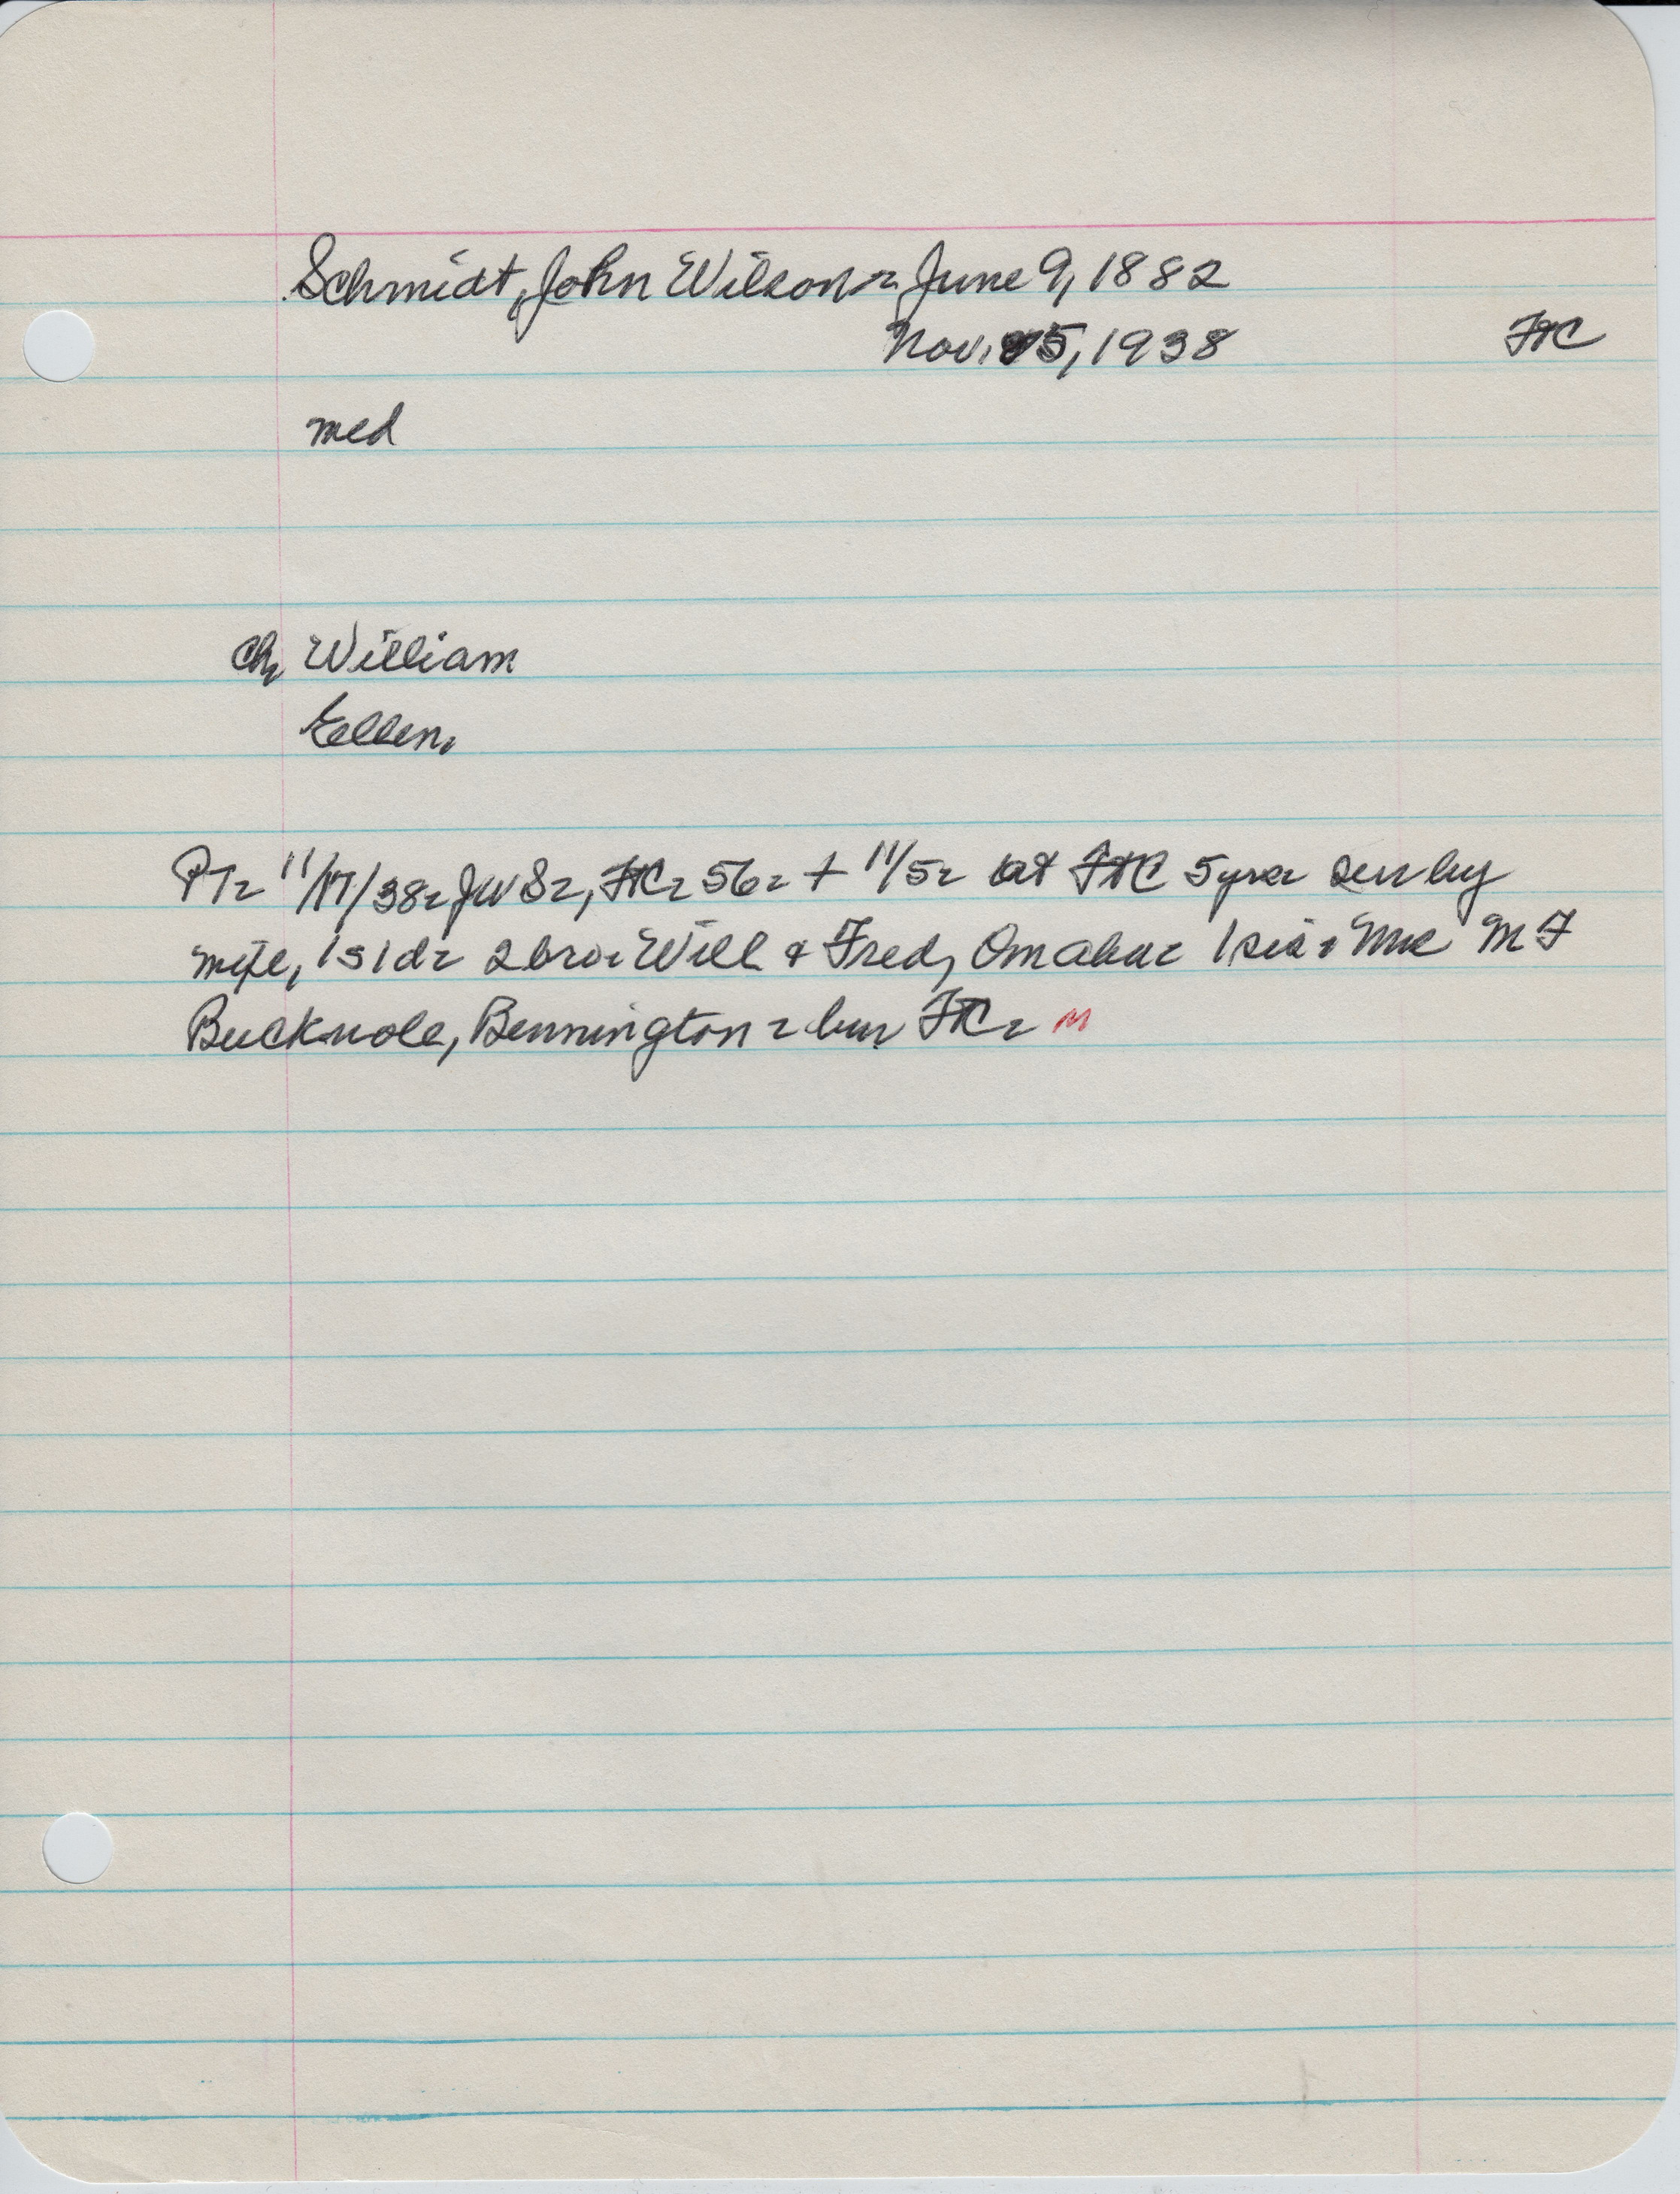 Schmidt, John Wilson - June 9, 1882
Nov. 5, 1938 FtC
med
Ch, William
Ellen.
PT- 11/17/38- JWS-, FtC- 56- + 11/5- at FtC 5 yrs- sur by
wife, 1s 1d- 2 bro- Will & Fred, Omaha- 1 sis- Mrs M F
Bucknole, Bennington - bur FtC- M